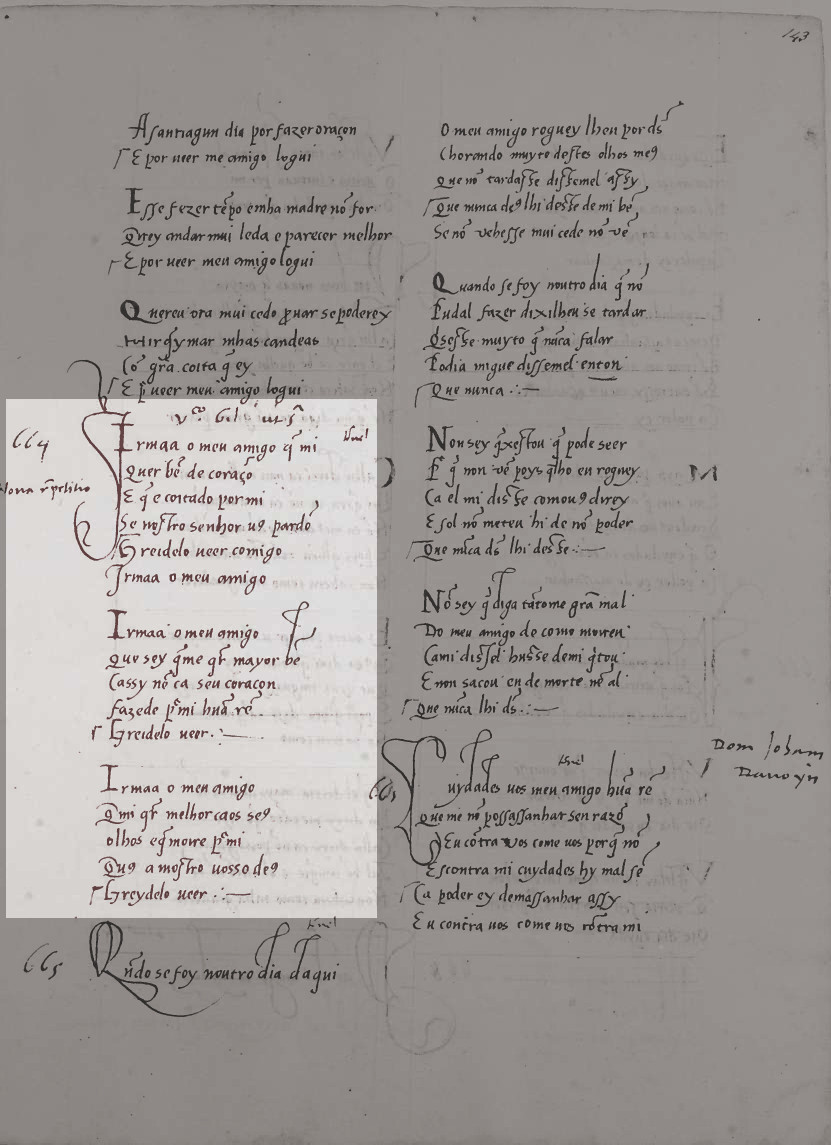 143
A santiagun dia por fazer oraçon
E por ueer meu amigo logui
E sse fezer tẽpo emha madre nõ for
Querey andar mui leda e parecer melhor
E por ueer meu amigo logui
Quereu ora mui cedo ꝓuar se poderey
hir q̃ymar mhas candeas
Cõ grã coita q̃ ey
E p̃ ueer meu amigo logui
664
Irmaa o meu amigo q̃ mi
Quer bẽ de coraçõ
E q̃ e coitado por mi
Se nostro senhor u9 pardõ
Treidelo ueer comigo
Irmaa o meu amigo
Irmaa o meu amigo
Que sey q̃ me q̃r mayor bẽ
Ca ssy nẽ ca seu coraçon
fazede p̃ mi hũa rẽ
Treidelo ueer
Irmaa o meu amigo
Q̃ mi q̃r melhor ca os se9
olhos e q̃ moire p̃ mi
Q̃ u9 amostro uosso de9
Treydelo ueer
665
Quãdo se foy noutro dia daqui
O meu amigo roguey lheu por ds
Chorando muyto destes olhos me9
Que nõ tardasse dissemel assy
Que nunca de9 lhi desse de mi bẽ
Se nõ vehesse mui cede nõ vẽ
Quando se foy noutro dia q̃ nõ
Pudal fazer dixilheu se tardar
Q̃sesse muyto q̃ nũca falar
Podia migue dissemel enton
Que nunca
Non sey q̃xestou q̃ pode seer
P̃ q̃ non vẽ poys q̃lho eu roguey
Ca el mi disse como u9 direy
E sol nõ meteu hi de nõ poder
Que nũca ds lhi desse
M
Nõ sey q̃ diga tãtome grã mal
Do meu amigo de como morreu
Ca mi dissel husse de mi q̃tou
E non sacou en de morte nẽ al
Que nũca lhi ds
Dom Joham
Cuydades uos meu amigo hũa rẽ
Que me nõ possassanhar sen razõ
Eu cõtra uos come uos porq̃ nõ
Escontra mi cuydades hy mal sẽ
Ca poder ey demassanhar assy
Eu contra uos come uos cõtra mi